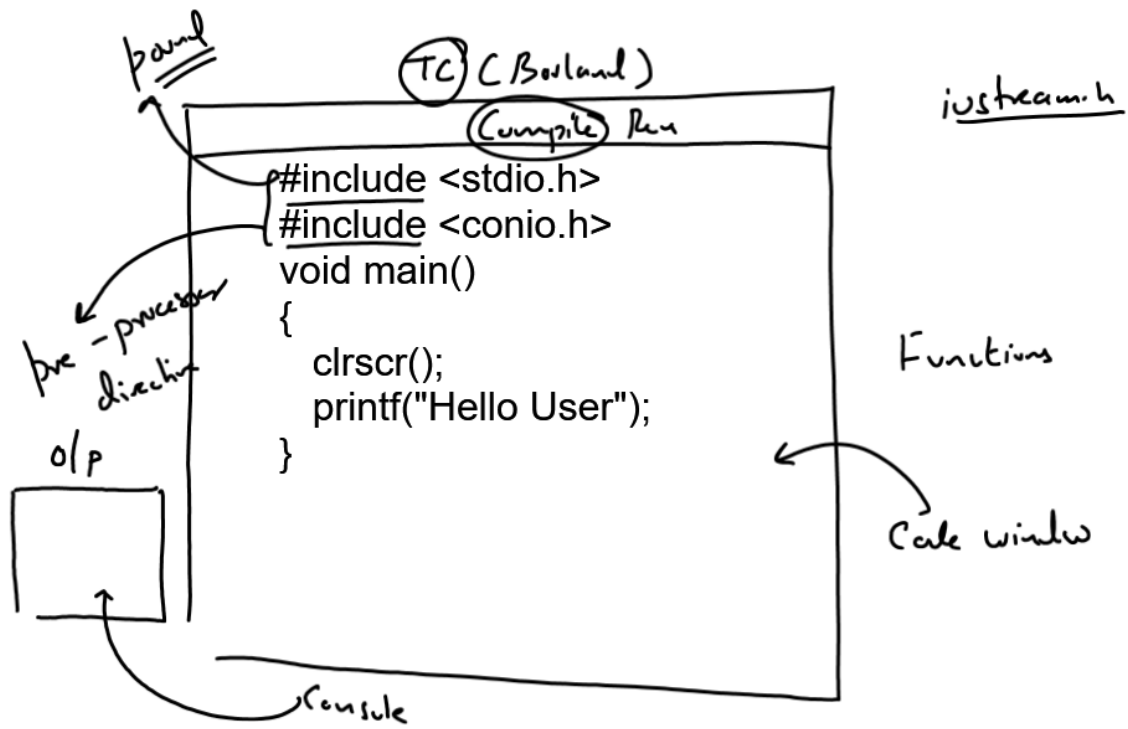 pound
TC (Borland)
iostream.h
Compile Run
#include <stdio.h>
#include <conio.h>
void main()
{
clrscr();
printf("Hello User");
}
pre-processor
directive
Functions
o/p
Code window
Console